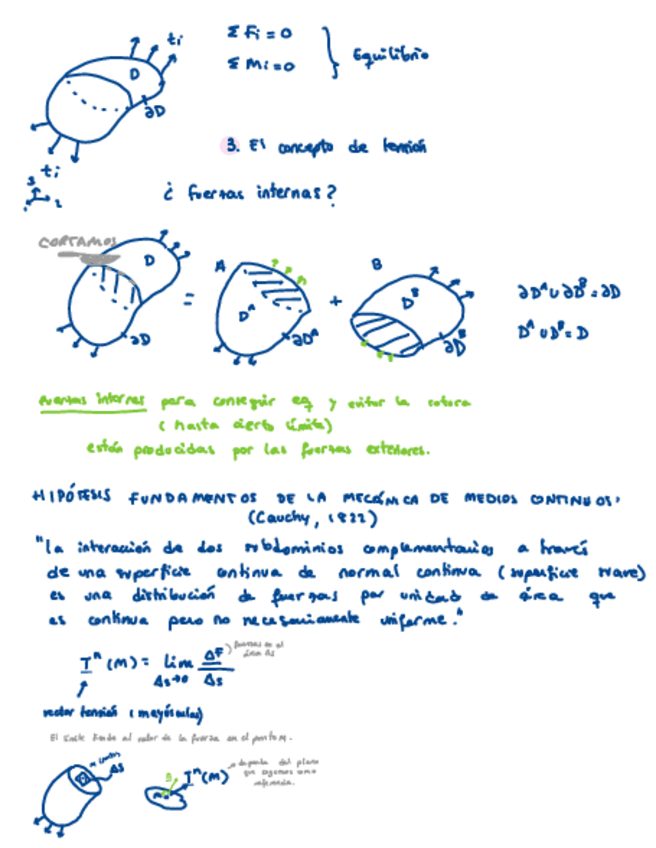 ti
Σ Fi = 0
Σ Mi = 0
Equilibrio
D
∂D
ti
3. El concepto de tensión
3
2
¿ fuerzas internas ?
CORTAMOS
D
∂D
=
A
D^A
∂D^A
+
B
D^B
∂D^B
∂D^A ∪ ∂D^B = ∂D
D^A ∪ D^B = D
fuerzas internas para conseguir eq y evitar la rotura
( hasta cierto límite)
están producidas por las fuerzas exteriores.
HIPÓTESIS FUNDAMENTOS DE LA MECÁNICA DE MEDIOS CONTINUOS:
(Cauchy, 1822)
"la interacción de dos subdominios complementarios a través
de una superficie continua de normal continua ( superficie suave)
es una distribución de fuerzas por unidad de área que
es continua pero no necesariamente uniforme."
T^n (M) = lim ΔF / Δs
Δs→0
fuerzas en el
área Δs
vector tensión ( mayúsculas)
El límite tiende al valor de la fuerza en el punto M.
Δs
T^n(M)
depende del plano
que cogemos como
referencia.